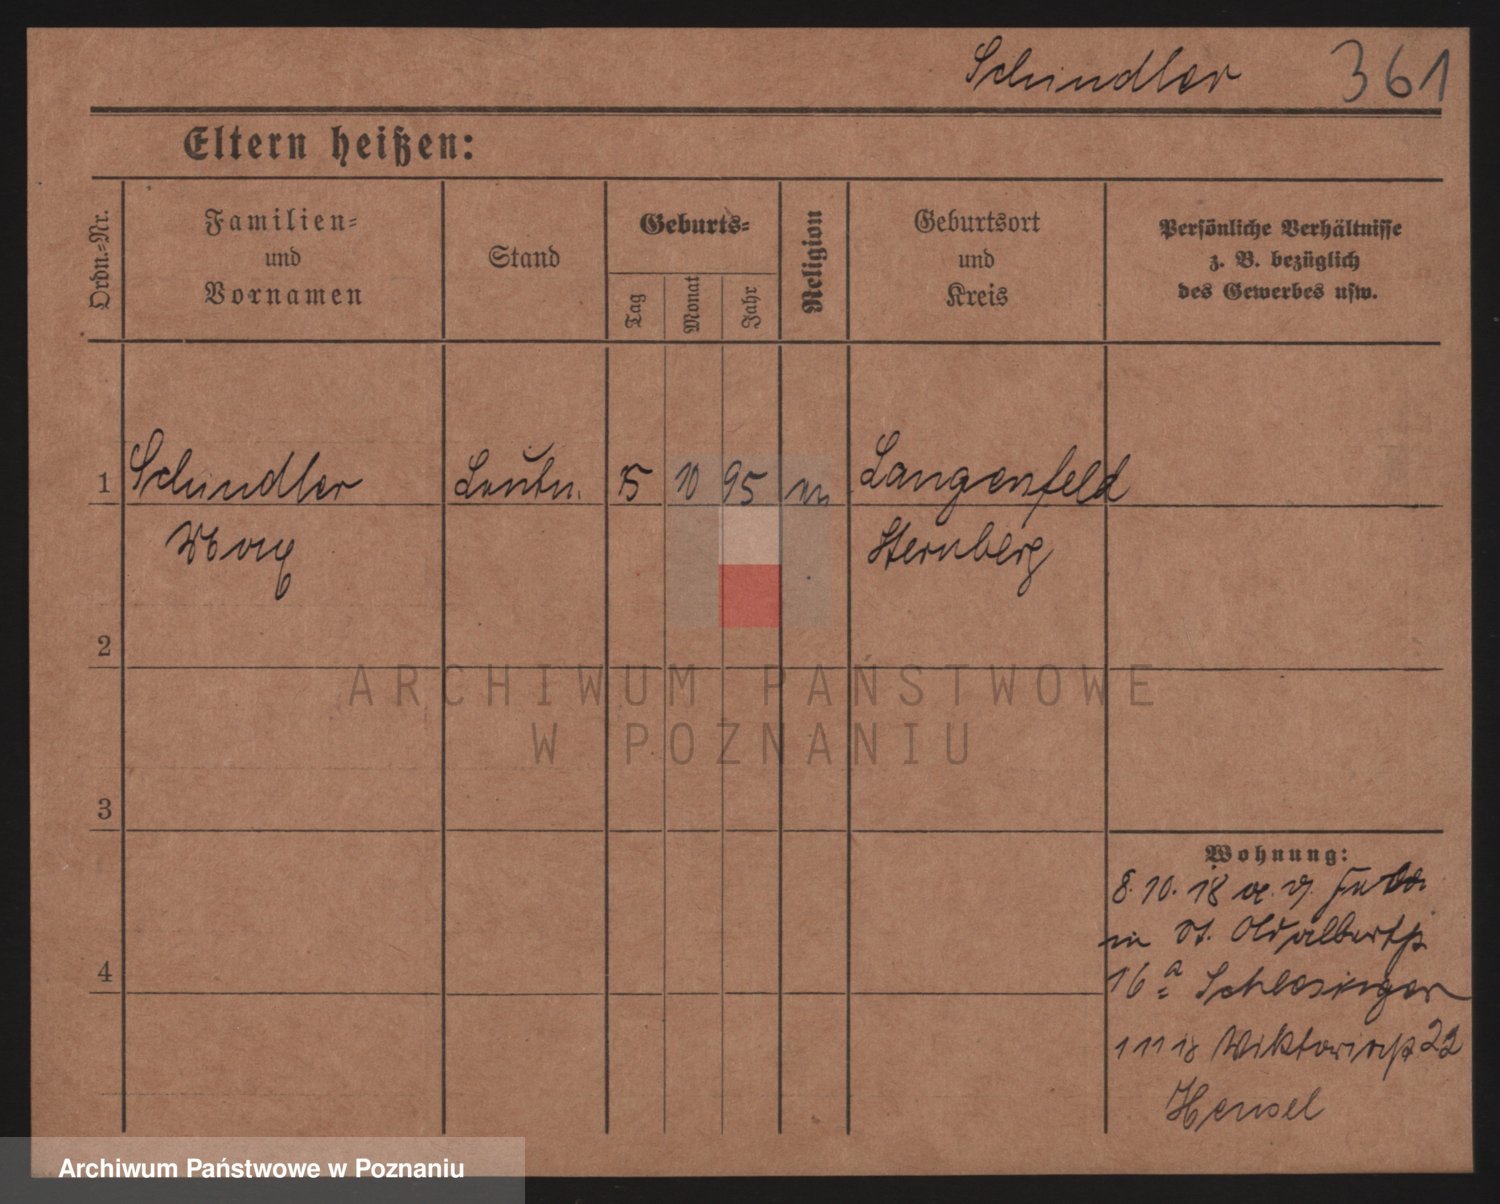 Schindler 361
Eltern heißen:
Ordn.=Nr.
Familien=
und
Vornamen
Stand
Geburts=
Tag
Monat
Jahr
Religion
Geburtsort
und
Kreis
Persönliche Verhältnisse
z. B. bezüglich
des Gewerbes usw.
1 Schindler Leutn. 15 10 95 Langenfeld
Max Sternberg
2
ARCHIWUM PAŃSTWOWE
W POZNANIU
3
Wohnung:
8.10.18
in St. Adalbertstr
4
16a Schlesinger
Viktoriastr 22
Hensel
Archiwum Państwowe w Poznaniu